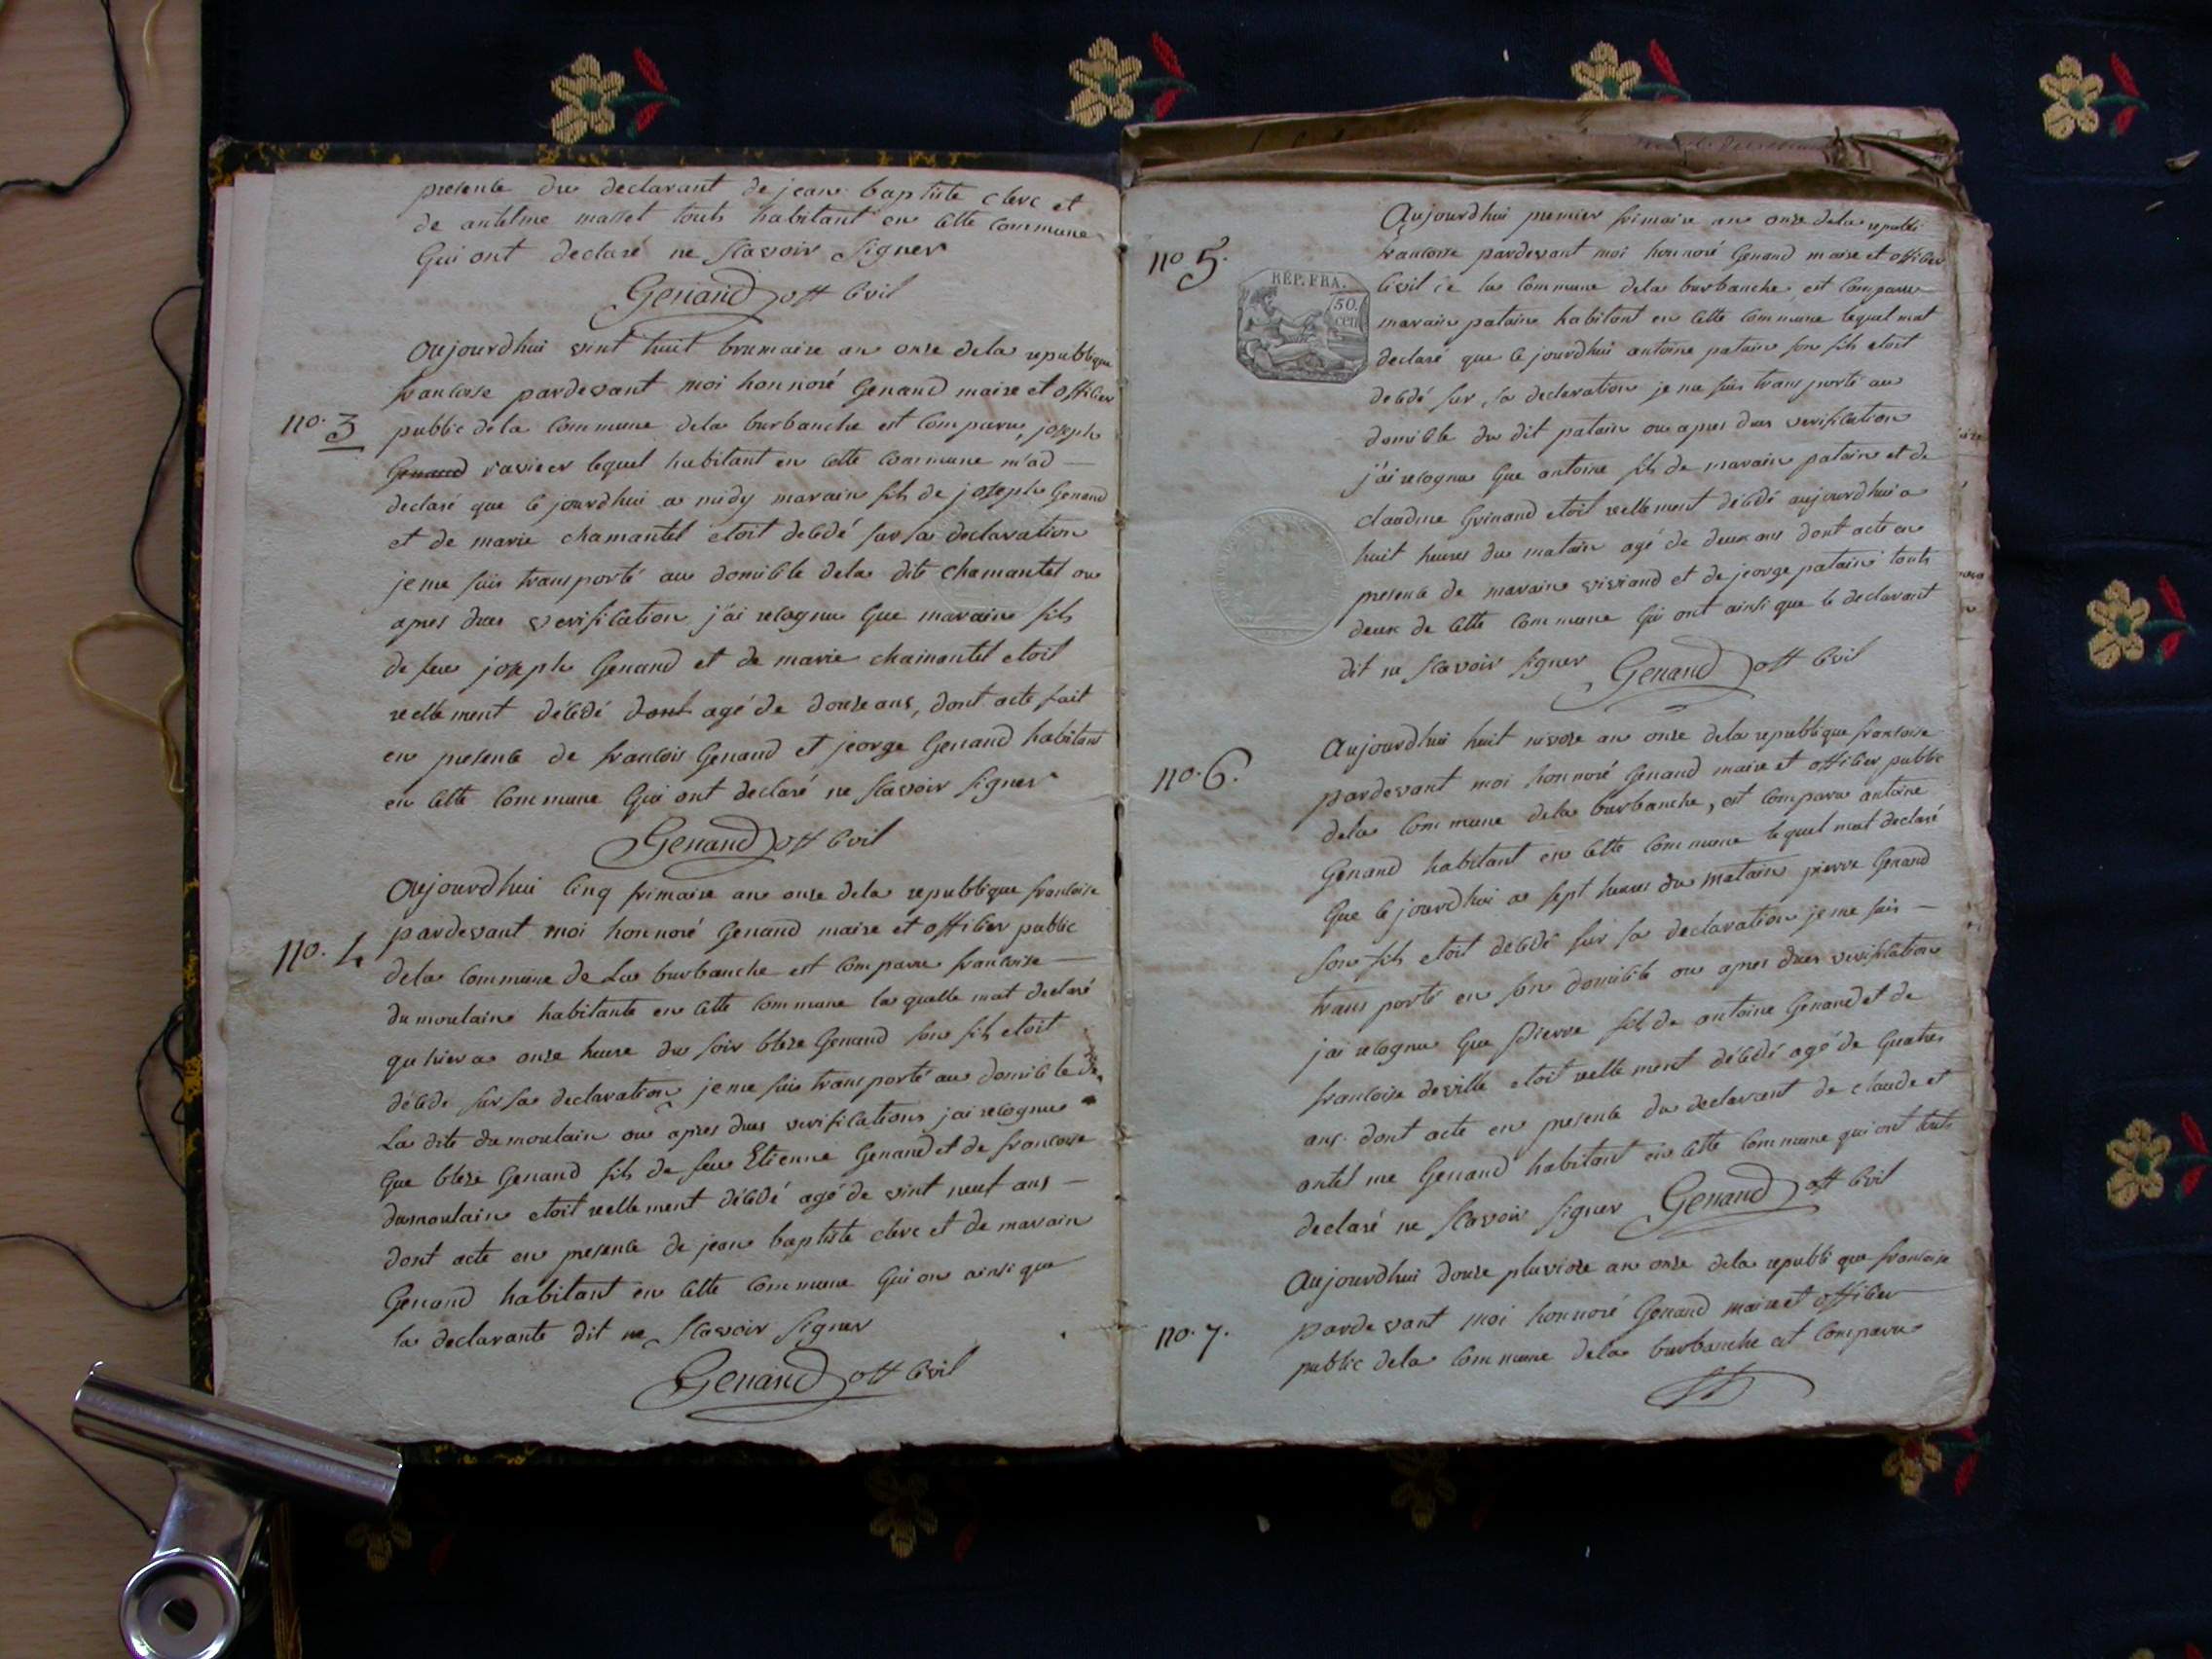 presente du declarant de jean baptiste clerc et
de antelme masset touts habitant en cette commune
qui ont declaré ne scavoir signer
Genand off civil
no. 3
Aujourdhui vint huit brumaire an onze dela republique
francoise pardevant moi honnoré Genand maire et officier
public dela commune dela burbanche est comparu, joseph
Genand ravieer lequel habitant en cette commune m'ad
declaré que cejourdhui a midy marain fils de joseph Genand
et de marie chamantel etoit decedé sur sa declaration
je me suis transporté au domicile dela dite chamantel ou
apres dues verification j'ai recognu que marain fils
de feu joseph Genand et de marie chamantel etoit
reellement décédé dont agé de douze ans, dont acte fait
en presente de francois Genand et jeorge Genand habitant
en cette commune qui ont declaré ne scavoir signer
Genand off civil
no. 4
Aujourdhui cinq frimaire an onze dela republique francoise
pardevant moi honnoré Genand maire et officier public
dela commune de La burbanche est comparu francoise
dumoulain habitante en cette commune la quelle mat declaré
qu hier a onze heure du soir bleze Genand son fils etoit
décédé sur sa declaration je me suis transporté au domicile de
La dite dumoulain ou apres dues verifications jai recognu
que bleze Genand fils de feu Etienne Genand et de francoise
dumoulain etoit reellement décédé agé de vint neuf ans
dont acte en presente de jean baptiste clerc et de marain
Genand habitant en cette commune qui on ainsi que
la declarante dit ne scavoir signer
Genand off civil
no 5.
RÉP. FRA.
50.
cen
Aujourdhui premier frimaire an onze dela republi
francoise pardevant moi honnoré Genand maire et officier
civil de la commune dela burbanche, est comparu
marain patain habitant en cette commune lequel mat
declaré que cejourdhui antoine patain son fils etoit
decédé sur sa declaration je me suis transporté au
domicile du dit patain ou apres dues verification
j'ai recognu que antoine fils de marain patain et de
claudine Guinand etoit reellement décédé aujourdhui a
huit heures du matain agé de deux ans dont acte en
presente de marain viviand et de jeorge patain touts
deux de cette commune qui ont ainsi que le declarant
dit ne scavoir signer Genand off civil
no. 6.
Aujourdhui huit nivoze an onze dela republique francoise
pardevant moi honnoré Genand maire et officier public
dela commune dela burbanche, est comparu antoine
Genand habitant en cette commune lequel mat declaré
que cejourdhui a sept heures du matain pierre Genand
son fils etoit décédé sur sa declaration je me suis
trans porté en son domicile ou apres dues verification
jai recognu que pierre fils de antoine Genand et de
francoise deville etoit reellement décédé agé de quatres
ans. dont acte en presente du declarant de claude et
antelme Genand habitant en cette commune qui ont touts
declaré ne scavoir signer Genand off civil
no. 7.
Aujourdhui douze pluvioze an onze dela republique francoise
pardevant moi honnoré Genand maire et officier
public dela commune dela burbanche est comparu